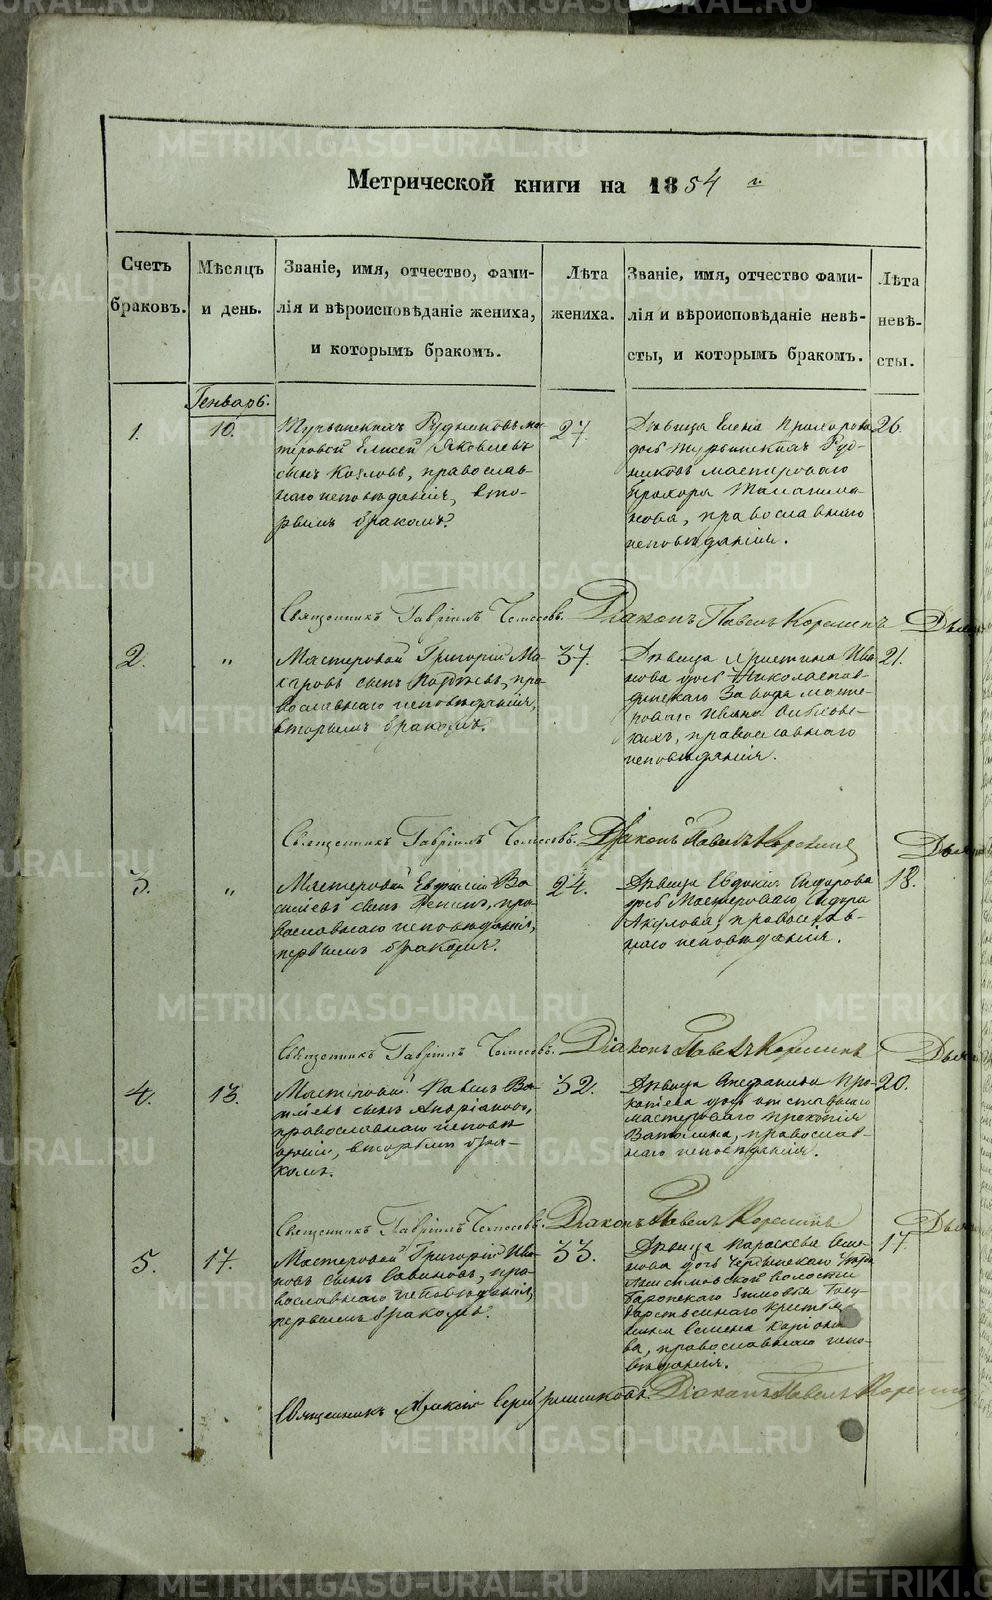 Метрической книги на 1854 г.
Счетъ браковъ.
Мѣсяцъ и день.
Званіе, имя, отчество, фами-
лія и вѣроисповѣданіе жениха,
и которымъ бракомъ.
Лѣта
жениха.
Званіе, имя, отчество фами-
лія и вѣроисповѣданіе невѣ-
сты, и которымъ бракомъ.
Лѣта
невѣ-
сты.
Генварь.
1.
10.
Турьинскихъ Рудниковъ мас-
теровой Елисей Яковлевъ
сынъ Козловъ, православ-
наго исповѣданія, вто-
рымъ бракомъ.
27.
Дѣвица Елена Прохорова
дочь Турьинскихъ Руд-
никовъ мастероваго
Прохора
православнаго
исповѣданія.
26.
Священникъ Гавріилъ Діаконъ Павелъ Корелинъ
2.
"
Мастеровой Григорій Ма-
каровъ сынъ пра-
вославнаго исповѣданія,
вторымъ бракомъ.
37.
Дѣвица Христина Ива-
нова дочь Николаепав-
динскаго Завода масте-
роваго Ивана
православнаго
исповѣданія.
21.
Священникъ Гавріилъ Діаконъ Павелъ Корелинъ
3.
"
Мастеровой Евфимій Ва-
сильевъ сынъ пра-
вославнаго исповѣданія,
первымъ бракомъ.
24.
Дѣвица Евдокія Сидорова
дочь Мастероваго Сидора
Акулова, православ-
наго исповѣданія.
18.
Священникъ Гавріилъ Діаконъ Павелъ Корелинъ
4.
13.
Мастеровой Павелъ Ва-
сильевъ сынъ Андріановъ,
православнаго исповѣ-
данія, вторымъ бра-
комъ.
32.
Дѣвица Степанида Про-
копіева дочь отставнаго
мастероваго Прокопія
Ватолина, православ-
наго исповѣданія.
20.
Священникъ Гавріилъ Діаконъ Павелъ Корелинъ
5.
17.
Мастеровой Григорій Ива-
новъ сынъ Савиновъ, пра-
вославнаго исповѣданія,
первымъ бракомъ.
33.
Дѣвица Параскева Семе-
нова дочь Чердынскаго
волости
Госу-
дарственнаго крестья-
нина Семена
православнаго испо-
вѣданія.
17.
Священникъ Алексій Серебренниковъ. Діаконъ Павелъ Корелинъ
METRIKI.GASO-URAL.RU